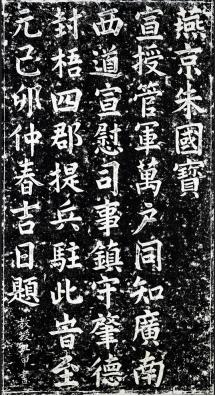 燕京朱國寶
宣授管軍萬戶同知廣南
西道宣慰司事鎮守肇德
封梧四郡提兵駐此旹至
元己卯仲春吉日題
教授 書